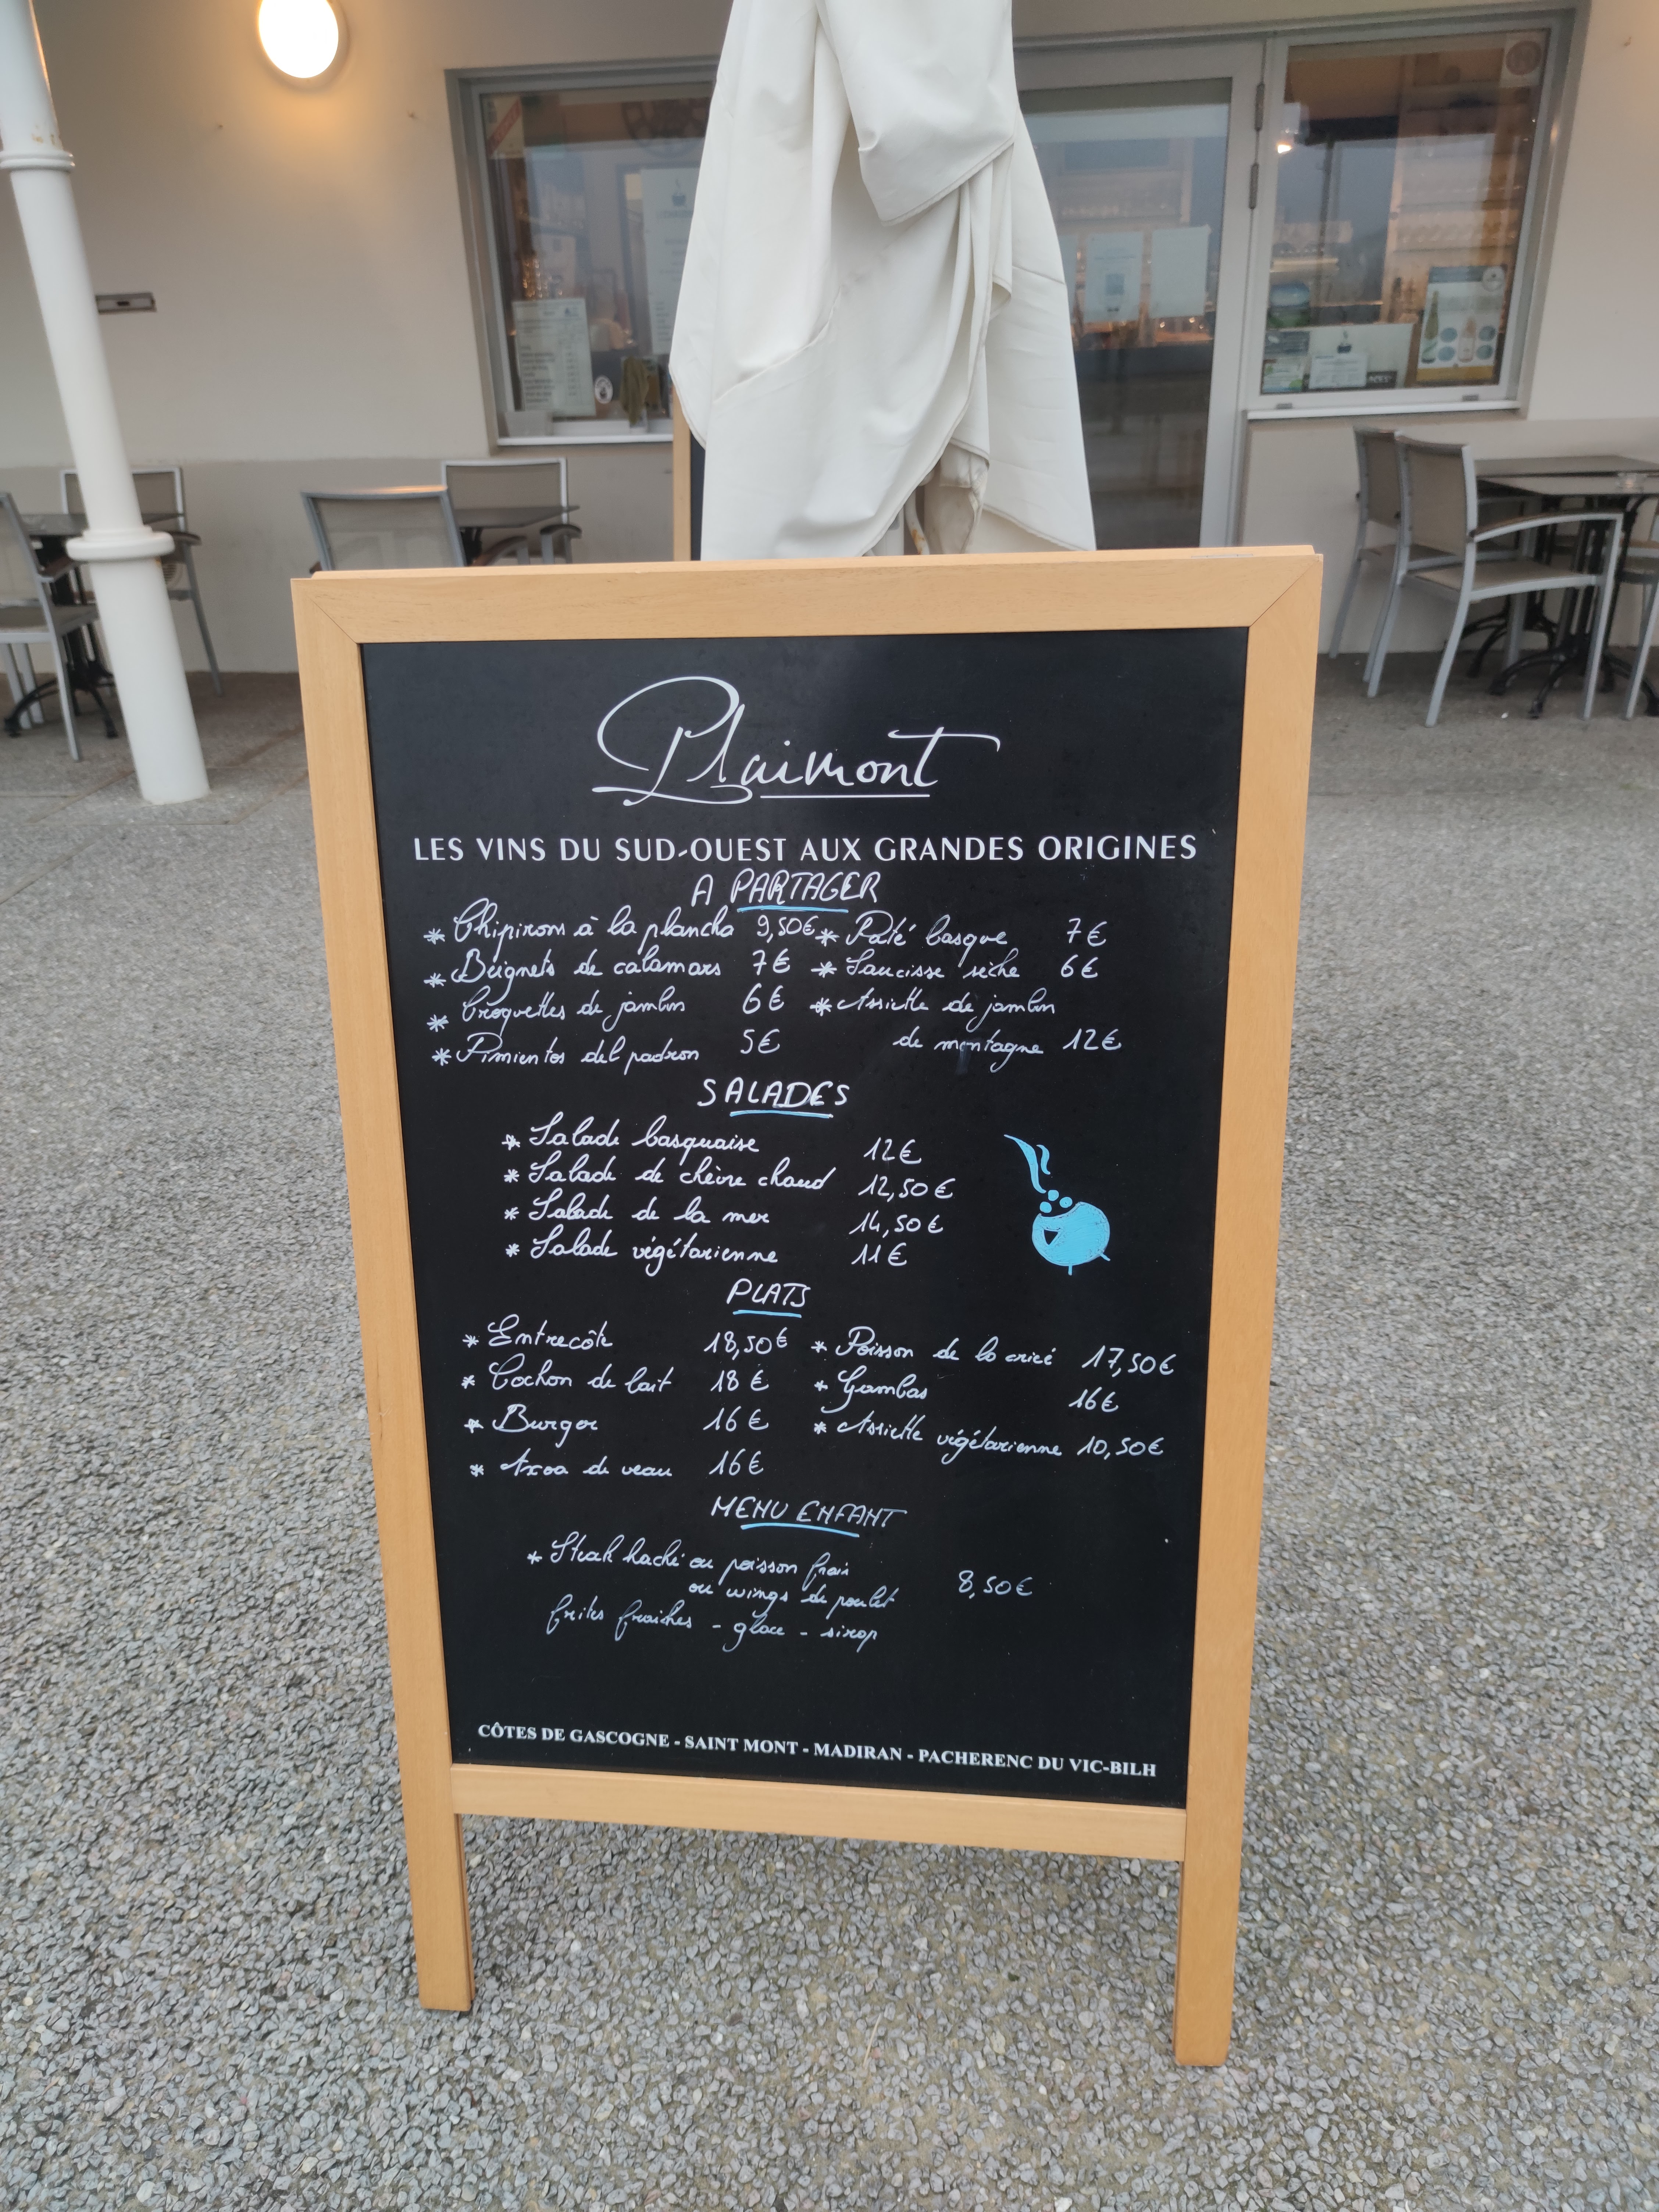 Plaimont
LES VINS DU SUD-OUEST AUX GRANDES ORIGINES
A PARTAGER
* Chipirons à la plancha 9,50€ * Pâté basque 7€
* Beignets de calamars 7€ * Saucisse sèche 6€
* Croquettes de jambon 6€ * Assiette de jambon
* Pimientos del padron 5€ de montagne 12€
SALADES
* Salade basquaise 12€
* Salade de chèvre chaud 12,50€
* Salade de la mer 14,50€
* Salade végétarienne 11€
PLATS
* Entrecôte 18,50€ * Poisson de la criée 17,50€
* Cochon de lait 18€ * Gambas 16€
* Burger 16€ * Assiette végétarienne 10,50€
* Axoa de veau 16€
MENU ENFANT
* Steak haché ou poisson frais
ou wings de poulet 8,50€
frites fraiches - glace - sirop
CÔTES DE GASCOGNE - SAINT MONT - MADIRAN - PACHERENC DU VIC-BILH